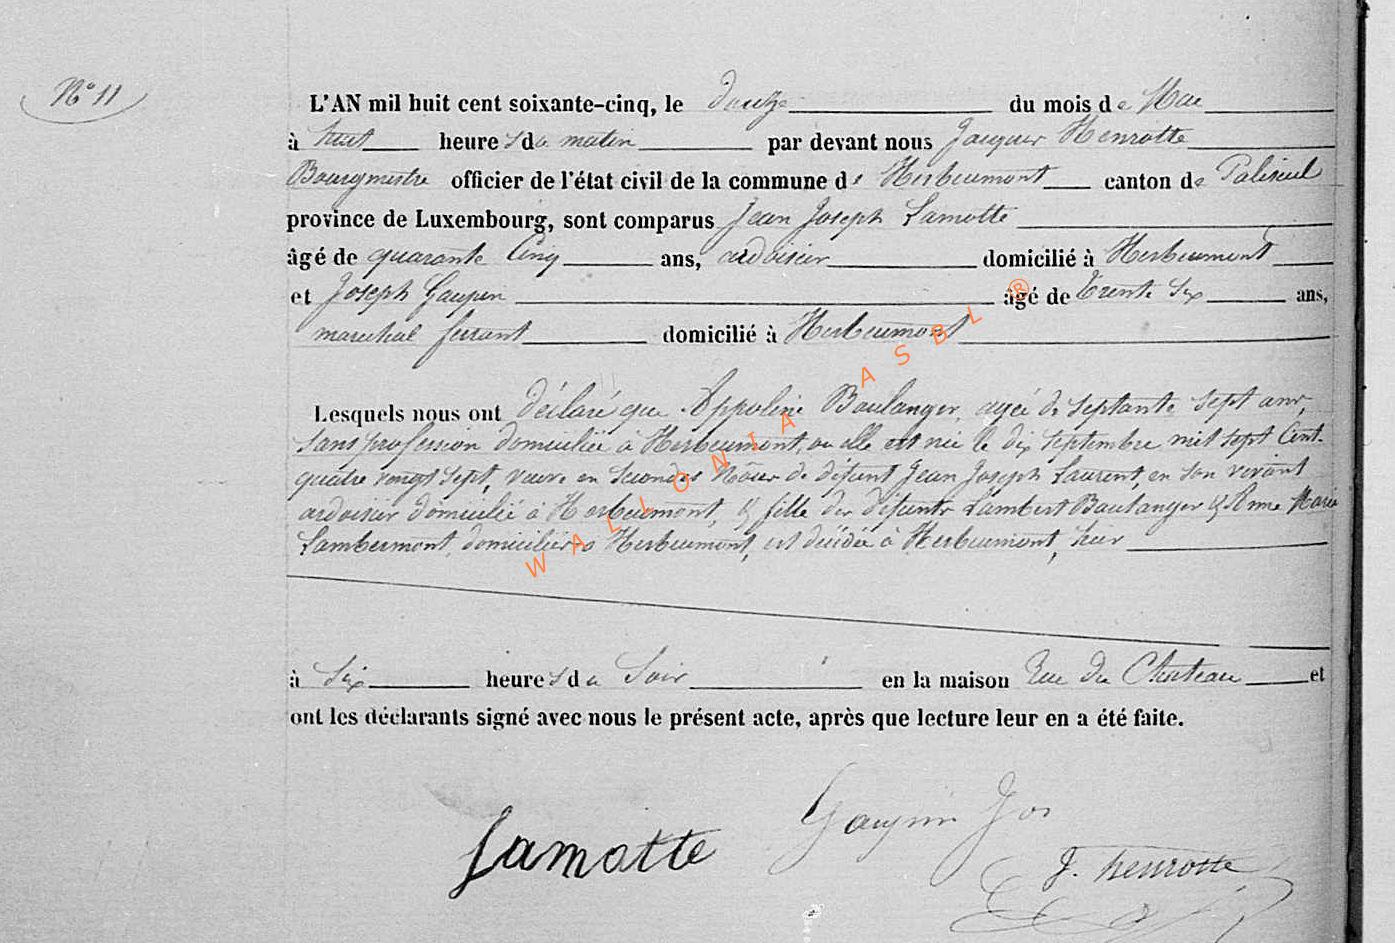 N° 11
L'AN mil huit cent soixante-cinq, le douze du mois de Mai
à huit heures du matin par devant nous Jacques Henrotte
Bourgmestre officier de l'état civil de la commune de Herbeumont canton de Paliseul
province de Luxembourg, sont comparus Jean Joseph Lamotte
âgé de quarante Cinq ans, ardoisier domicilié à Herbeumont
et Joseph Gaupin âgé de Trente Six ans,
marechal ferrant domicilié à Herbeumont
Lesquels nous ont déclaré que Appoline Boulanger agée de septante sept ans,
sans profession domiciliée à Herbeumont, ou elle est née le dix septembre mil sept Cent
quatre vingt sept, veuve en secondes Nôces de défunt Jean Joseph Laurent, en son vivant
ardoisier domicilié à Herbeumont, & fille des défunts Lambert Boulanger & Anne Marie
Lambermont, domiciliés à Herbeumont, est décédée à Herbeumont, hier
à Six heures du Soir en la maison Rue du Chateau et
ont les déclarants signé avec nous le présent acte, après que lecture leur en a été faite.
Lamotte
Gaupin Jos
J. henrotte
WALLONIA ASBL ®